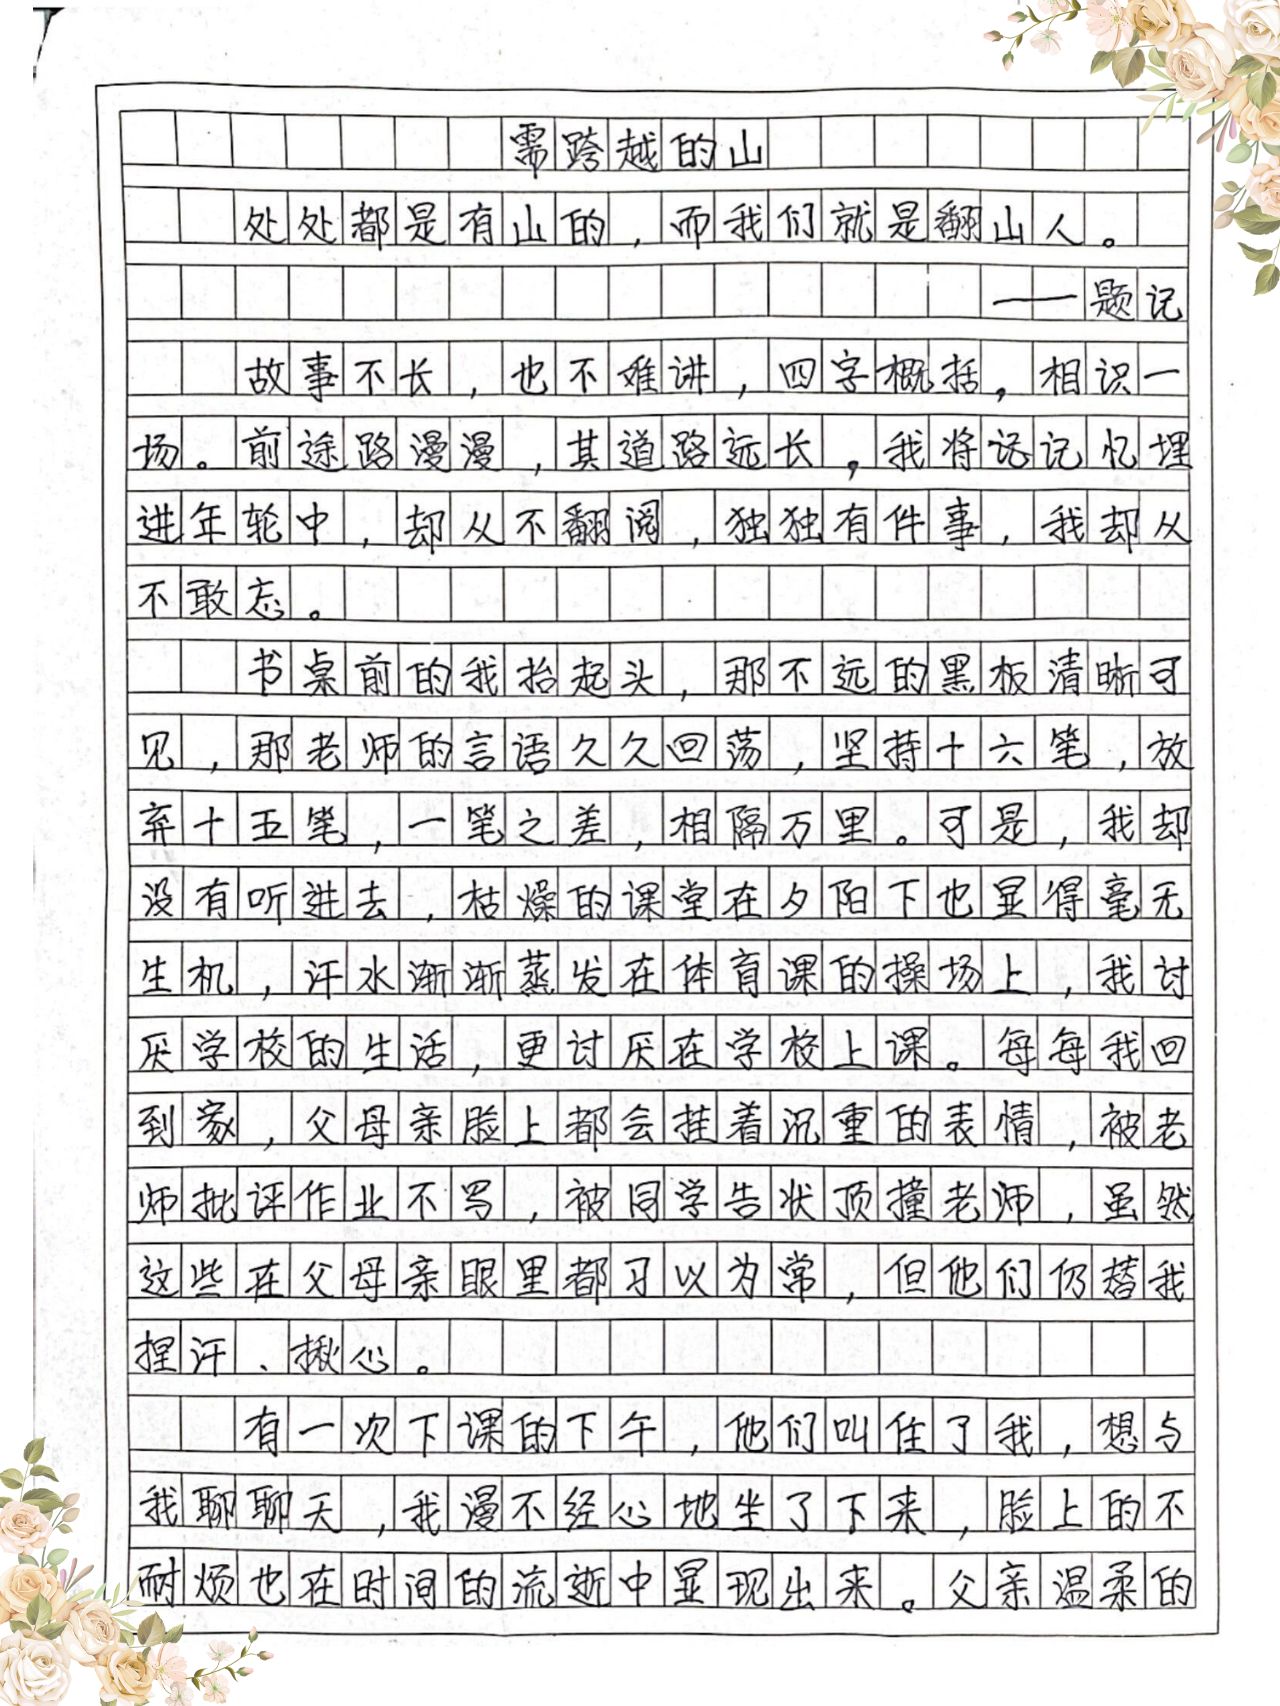 需跨越的山
处处都是有山的，而我们就是翻山人。
——题记
故事不长，也不难讲，四字概括，相识一
场。前途路漫漫，其道路远长，我将记记忆埋
进年轮中，却从不翻阅，独独有件事，我却从
不敢忘。
书桌前的我抬起头，那不远的黑板清晰可
见，那老师的言语久久回荡，坚持十六笔，放
弃十五笔，一笔之差，相隔万里。可是，我却
没有听进去，枯燥的课堂在夕阳下也显得毫无
生机，汗水渐渐蒸发在体育课的操场上，我讨
厌学校的生活，更讨厌在学校上课。每每我回
到家，父母亲脸上都会挂着沉重的表情，被老
师批评作业不写，被同学告状顶撞老师，虽然
这些在父母亲眼里都习以为常，但他们仍替我
捏汗、揪心。
有一次下课的下午，他们叫住了我，想与
我聊聊天，我漫不经心地坐了下来，脸上的不
耐烦也在时间的流逝中显现出来。父亲温柔的